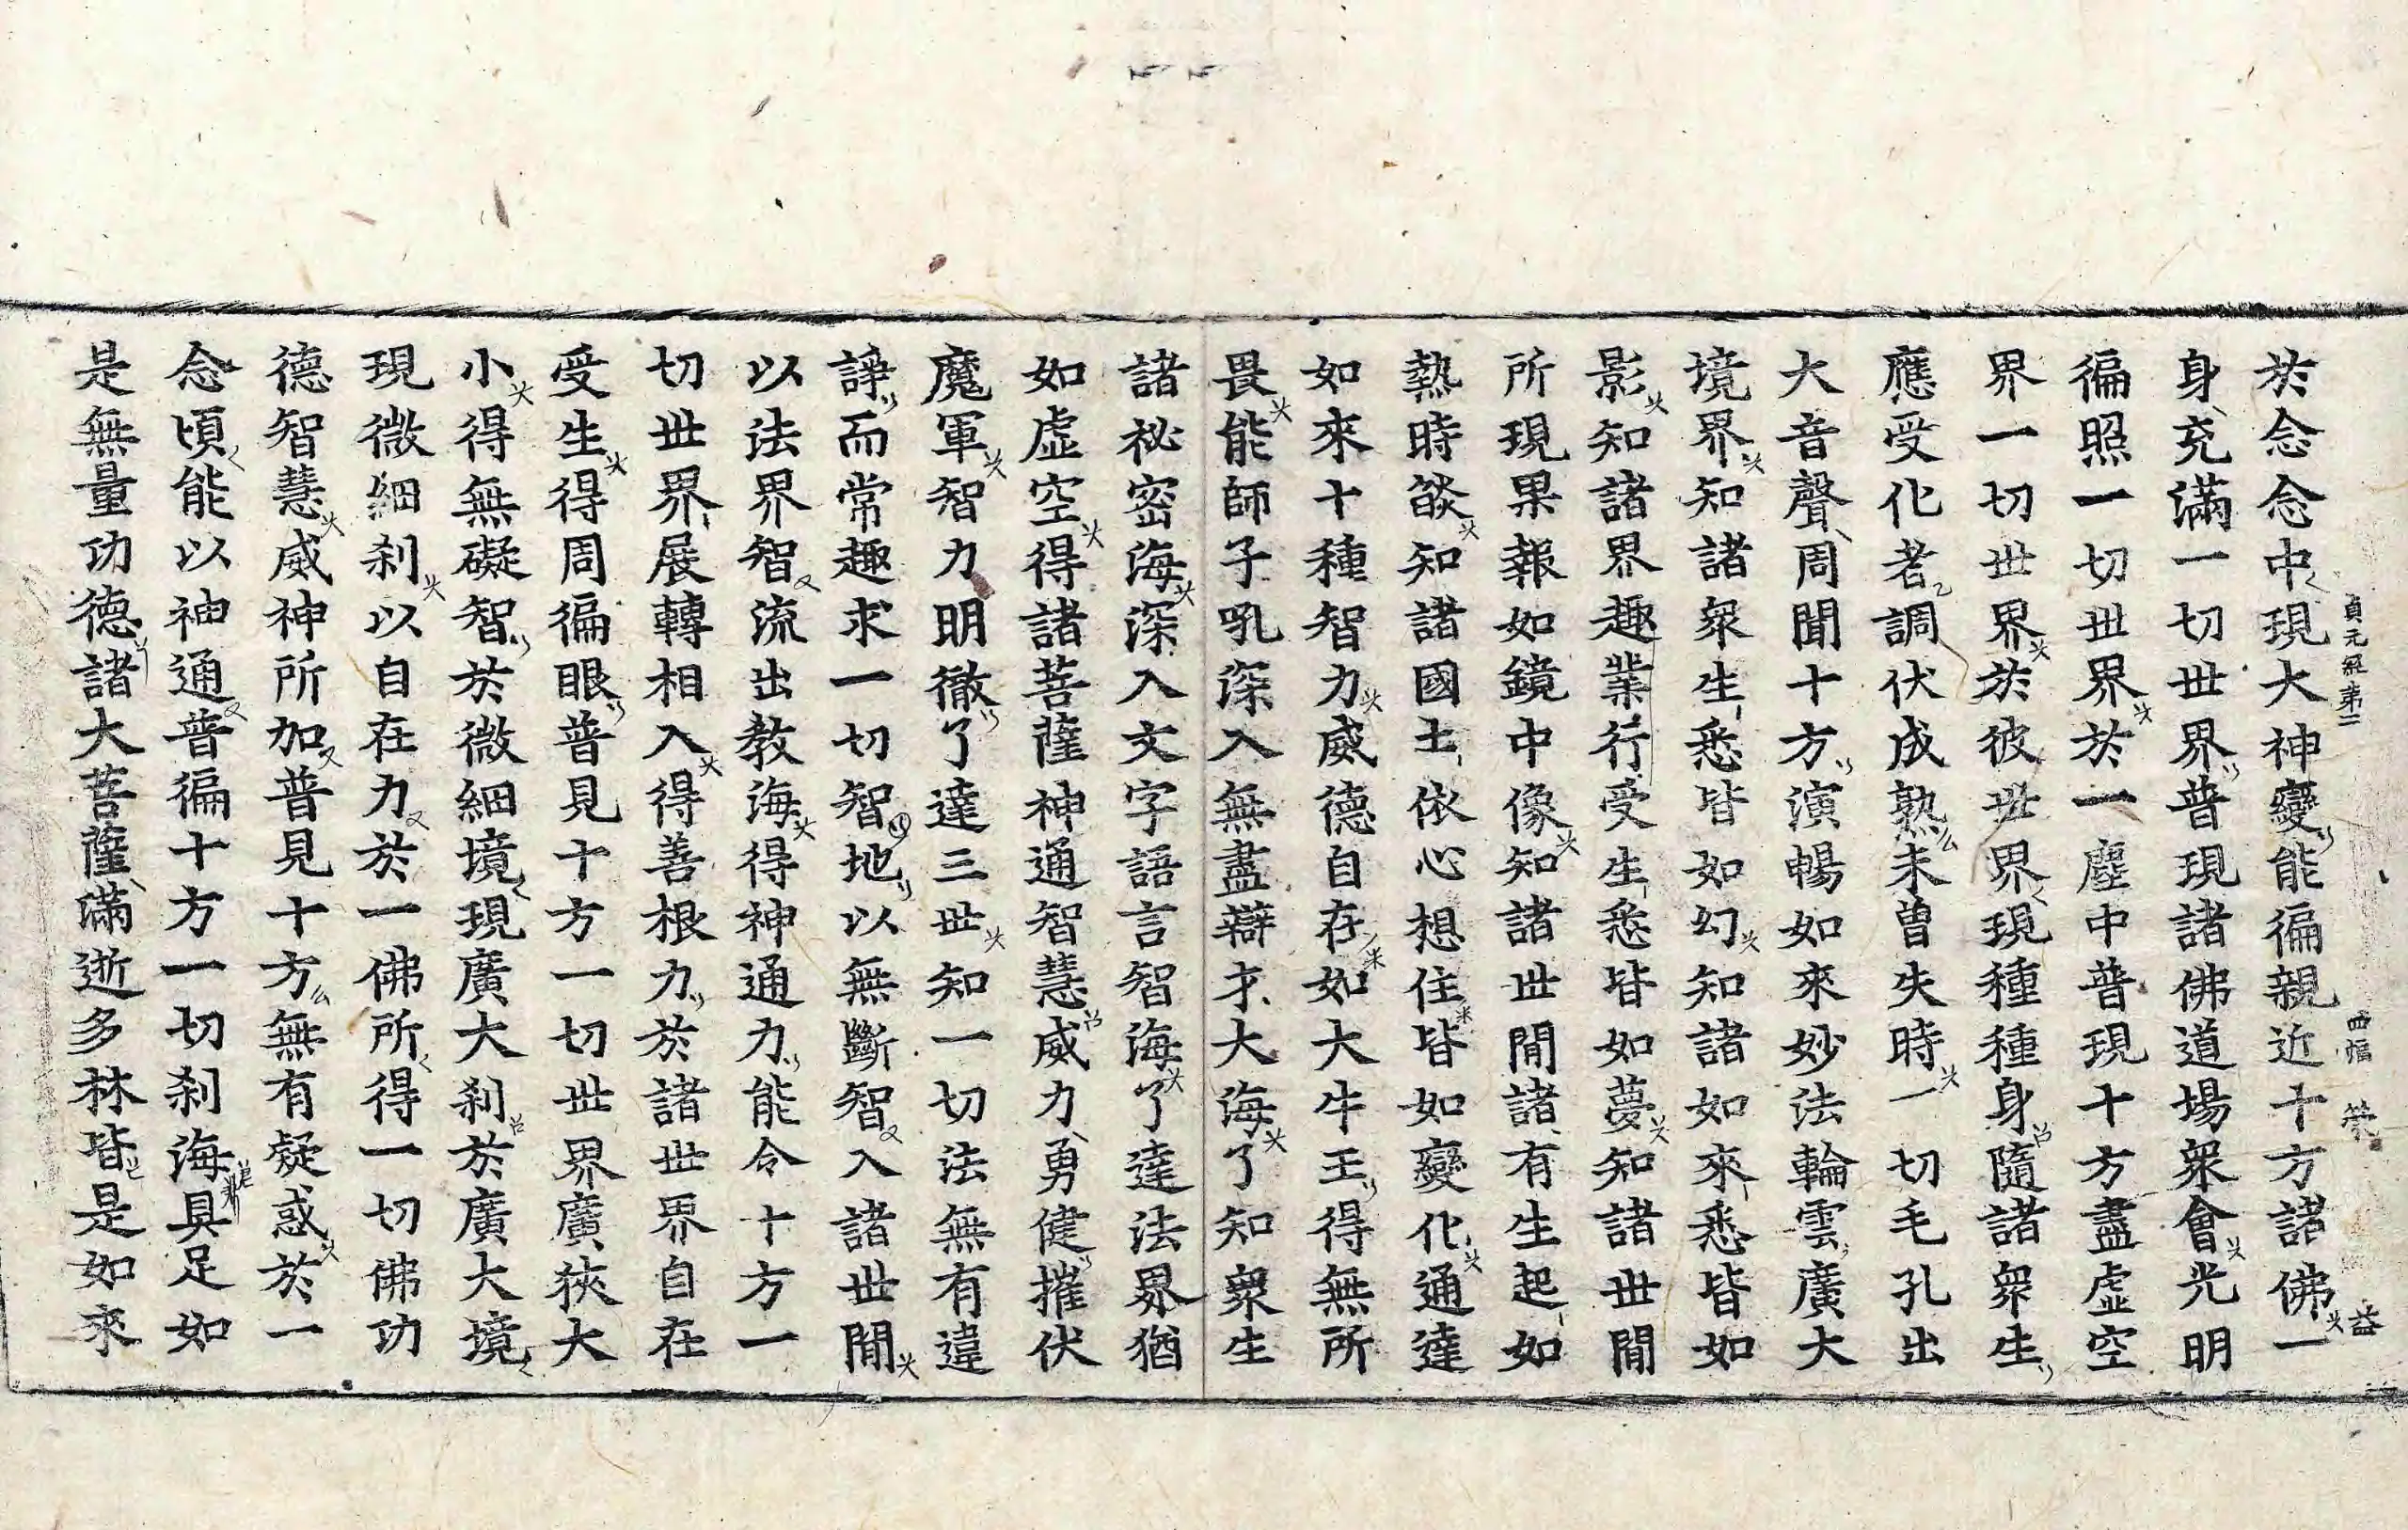 貞元經第二
四幅
益
於念念中現大神變能徧親近十方諸佛一
身充滿一切世界普現諸佛道場衆會光明
徧照一切世界於一塵中普現十方盡虛空
界一切世界於彼世界現種種身隨諸衆生
應受化者調伏成熟未曾失時一切毛孔出
大音聲周聞十方演暢如來妙法輪雲廣大
境界知諸衆生悉皆如幻知諸如來悉皆如
影知諸界趣業行受生悉皆如夢知諸世間
所現果報如鏡中像知諸世間諸有生起如
熱時燄知諸國土依心想住皆如變化通達
如來十種智力威德自在如大牛王得無所
畏能師子吼深入無盡辯才大海了知衆生
諸祕密海深入文字語言智海了達法界猶
如虛空得諸菩薩神通智慧威力勇健摧伏
魔軍智力明徹了達三世知一切法無有違
諍而常趣求一切智地以無斷智入諸世間
以法界智流出教海得神通力能令十方一
切世界展轉相入得善根力於諸世界自在
受生得周徧眼普見十方一切世界廣狹大
小得無礙智於微細境現廣大刹於廣大境
現微細刹以自在力於一佛所得一切佛功
德智慧威神所加普見十方無有疑惑於一
念頃能以神通普徧十方一切刹海具足如
是無量功德諸大菩薩滿逝多林皆是如來